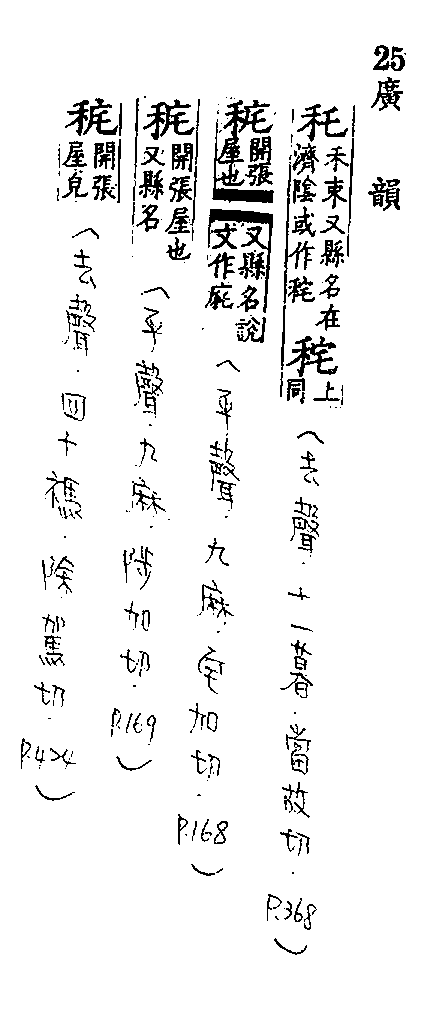 25 廣韻
秅 禾束又縣名在
濟陰或作
上
同
(去聲.十一暮.當故切.P.368)
開張
屋也
又縣名說
文作
(平聲.九麻.宅加切.P.168)
開張屋也
又縣名
(平聲.九麻.陟加切.P.169)
開張
屋皃
(去聲.四十禡.除駕切.P.424)